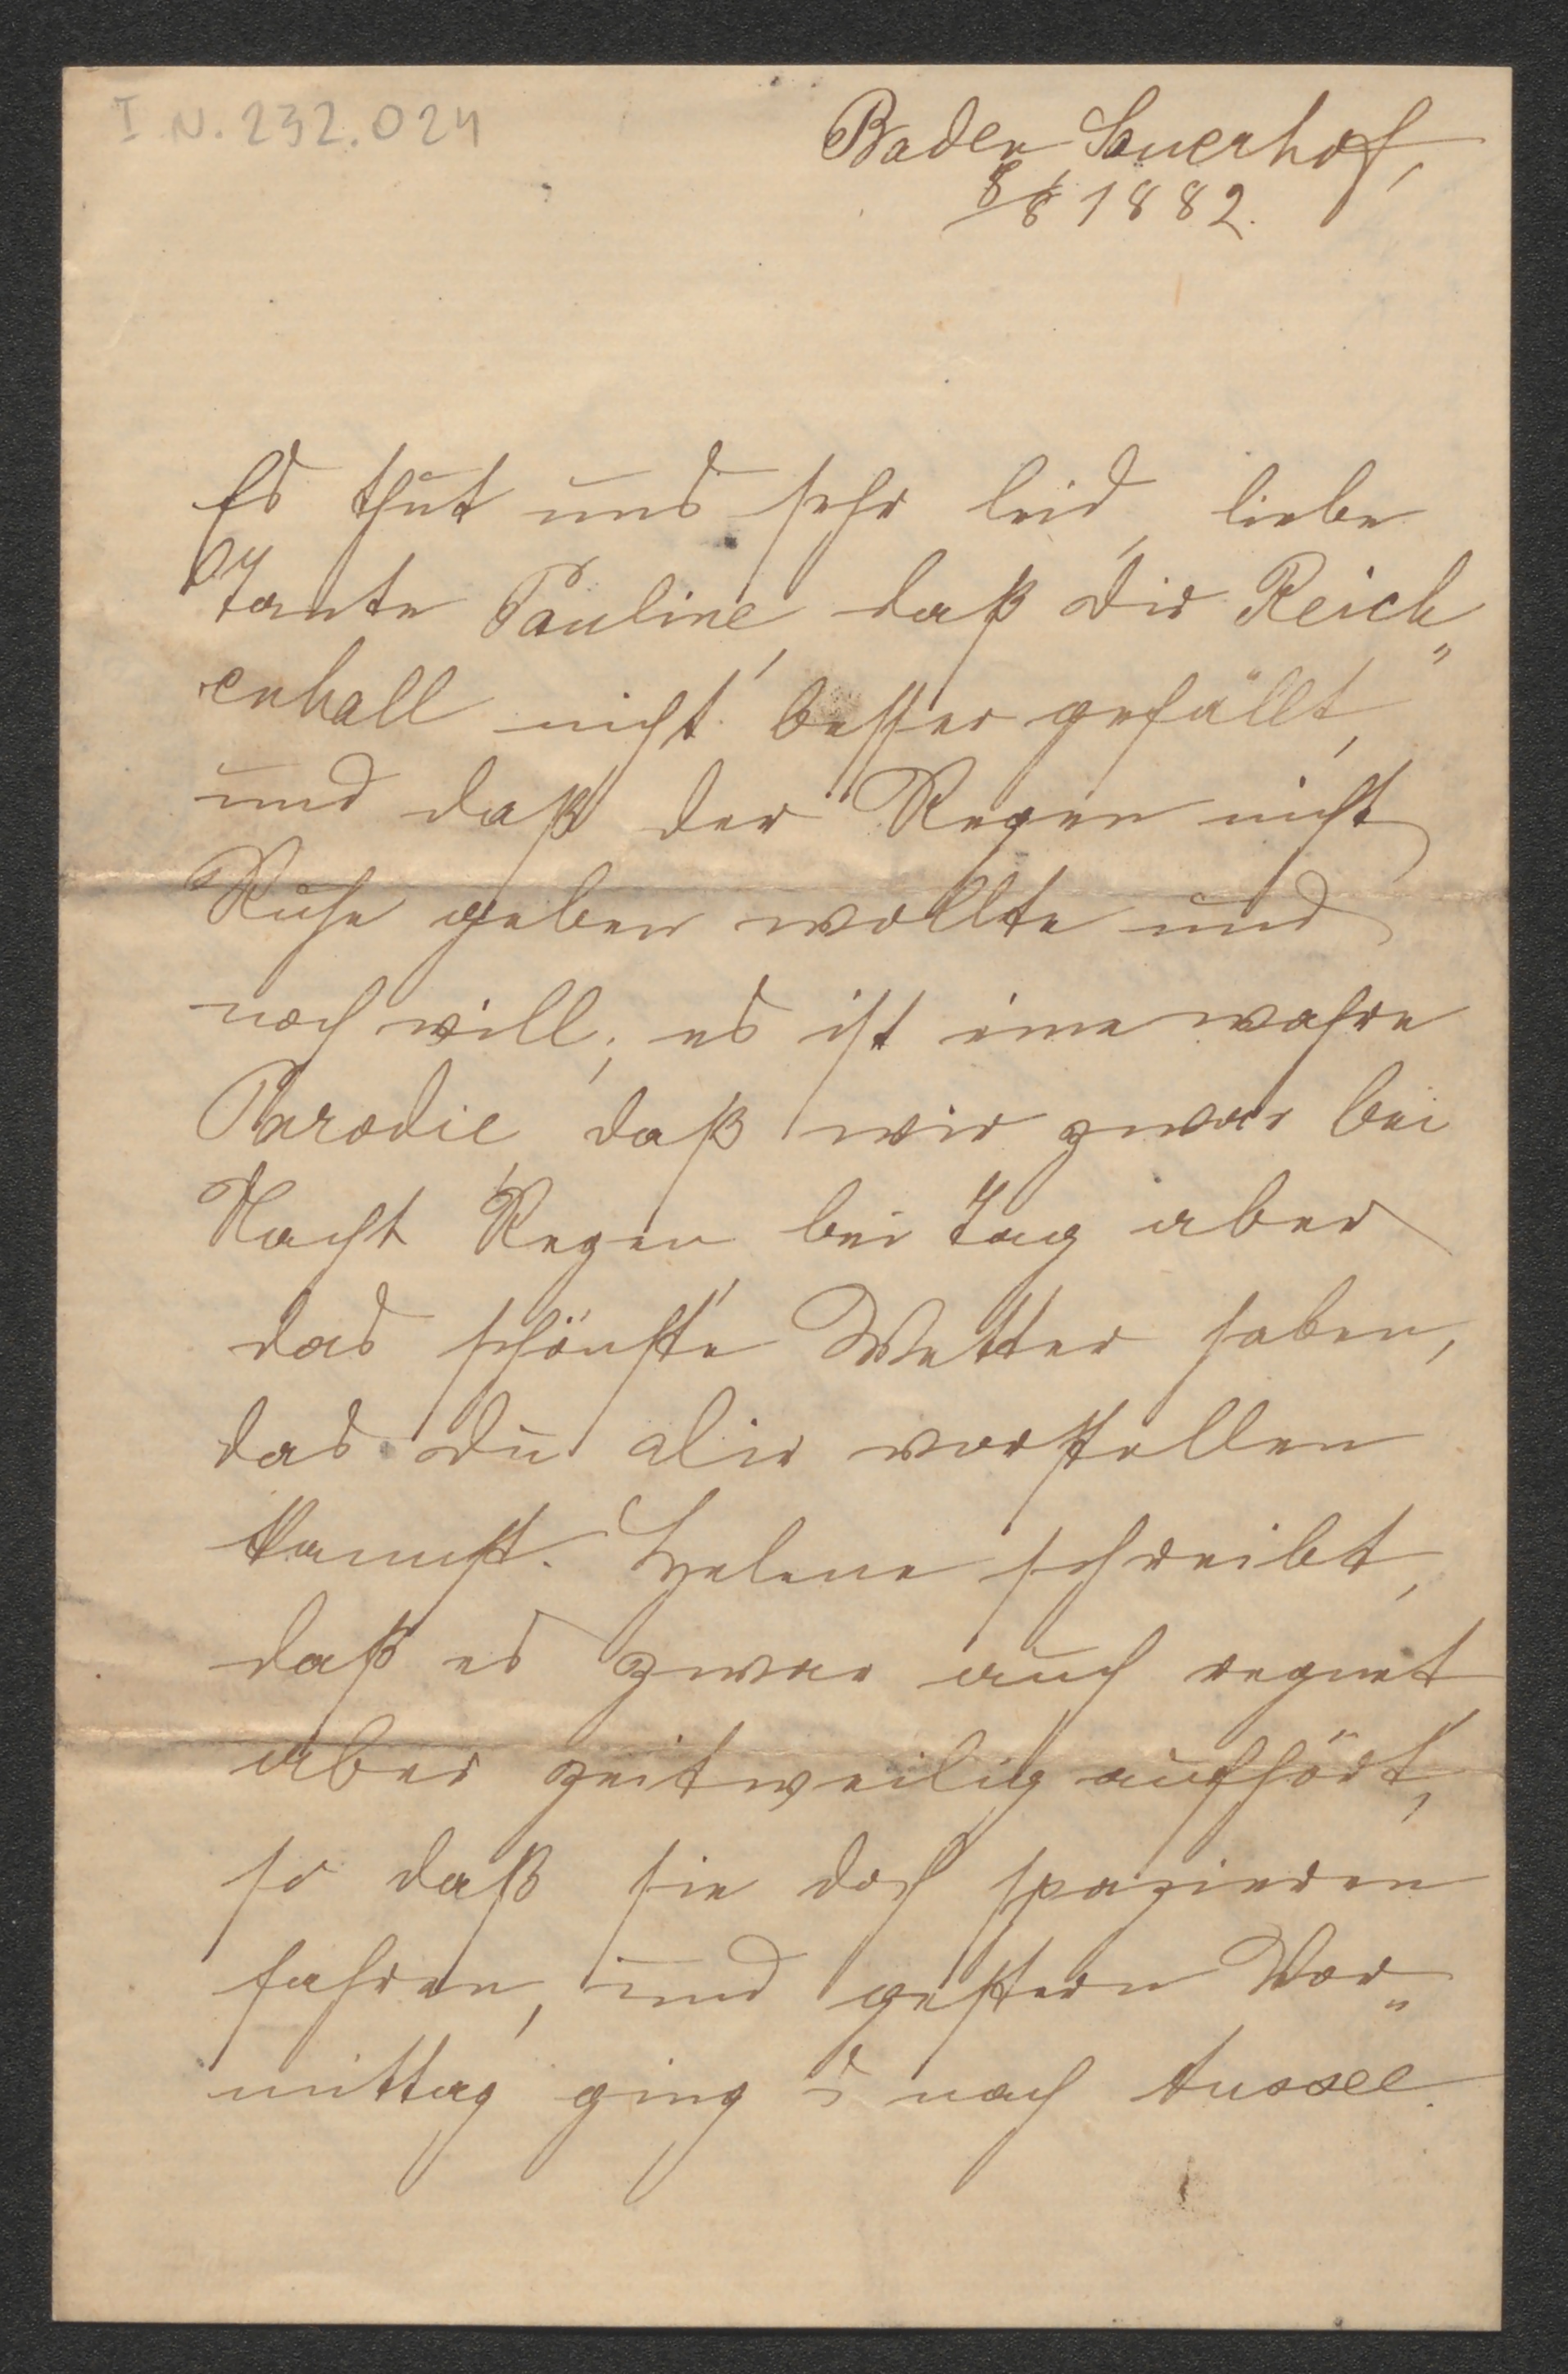 I.N. 232.024
Baden Sauerhof,
8/8 1882.
Es thut uns sehr leid, liebe
Tante Pauline, daß dir Reich„
enhall nicht besser gefällt,
und daß der Regen nicht
Ruhe geben wollte und
noch will; es ist eine wahre
Parodie, daß wir zwar bei
Nacht Regen, bei Tag aber
das schönste Wetter haben,
das du dir vorstellen
kannst. Helene schreibt,
daß es zwar auch regnet
aber zeitweilig aufhört,
so daß sie doch spazieren
fahren, und gestern Vor„
mittag ging's nach Aussee.